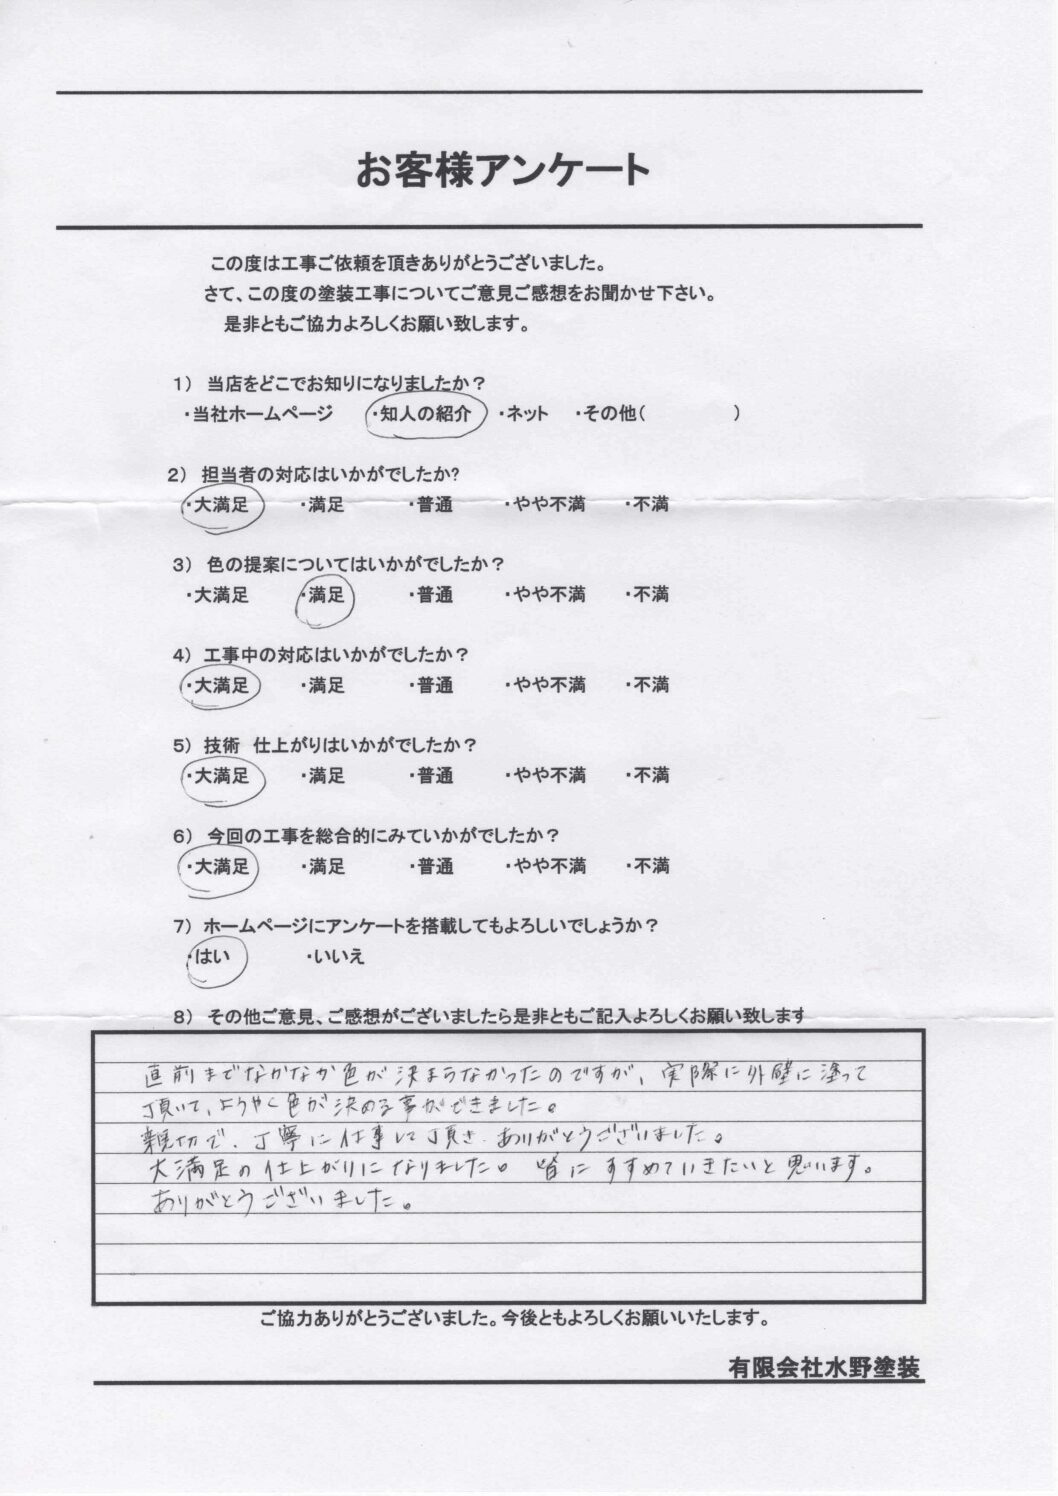 お客様アンケート
この度は工事ご依頼を頂きありがとうございました。
さて、この度の塗装工事についてご意見ご感想をお聞かせ下さい。
是非ともご協力よろしくお願い致します。
1） 当店をどこでお知りになりましたか？
・当社ホームページ ・知人の紹介 ・ネット ・その他（ ）
2） 担当者の対応はいかがでしたか?
・大満足 ・満足 ・普通 ・やや不満 ・不満
3） 色の提案についてはいかがでしたか？
・大満足 ・満足 ・普通 ・やや不満 ・不満
4） 工事中の対応はいかがでしたか？
・大満足 ・満足 ・普通 ・やや不満 ・不満
5） 技術 仕上がりはいかがでしたか？
・大満足 ・満足 ・普通 ・やや不満 ・不満
6） 今回の工事を総合的にみていかがでしたか？
・大満足 ・満足 ・普通 ・やや不満 ・不満
7） ホームページにアンケートを搭載してもよろしいでしょうか？
・はい ・いいえ
8） その他ご意見、ご感想がございましたら是非ともご記入よろしくお願い致します
直前までなかなか色が決まらなかったのですが、実際に外壁に塗って
頂いて、ようやく色が決める事ができました。
親切で、丁寧に仕事して頂き、ありがとうございました。
大満足の仕上がりになりました。皆にすすめていきたいと思います。
ありがとうございました。
ご協力ありがとうございました。今後ともよろしくお願いいたします。
有限会社水野塗装